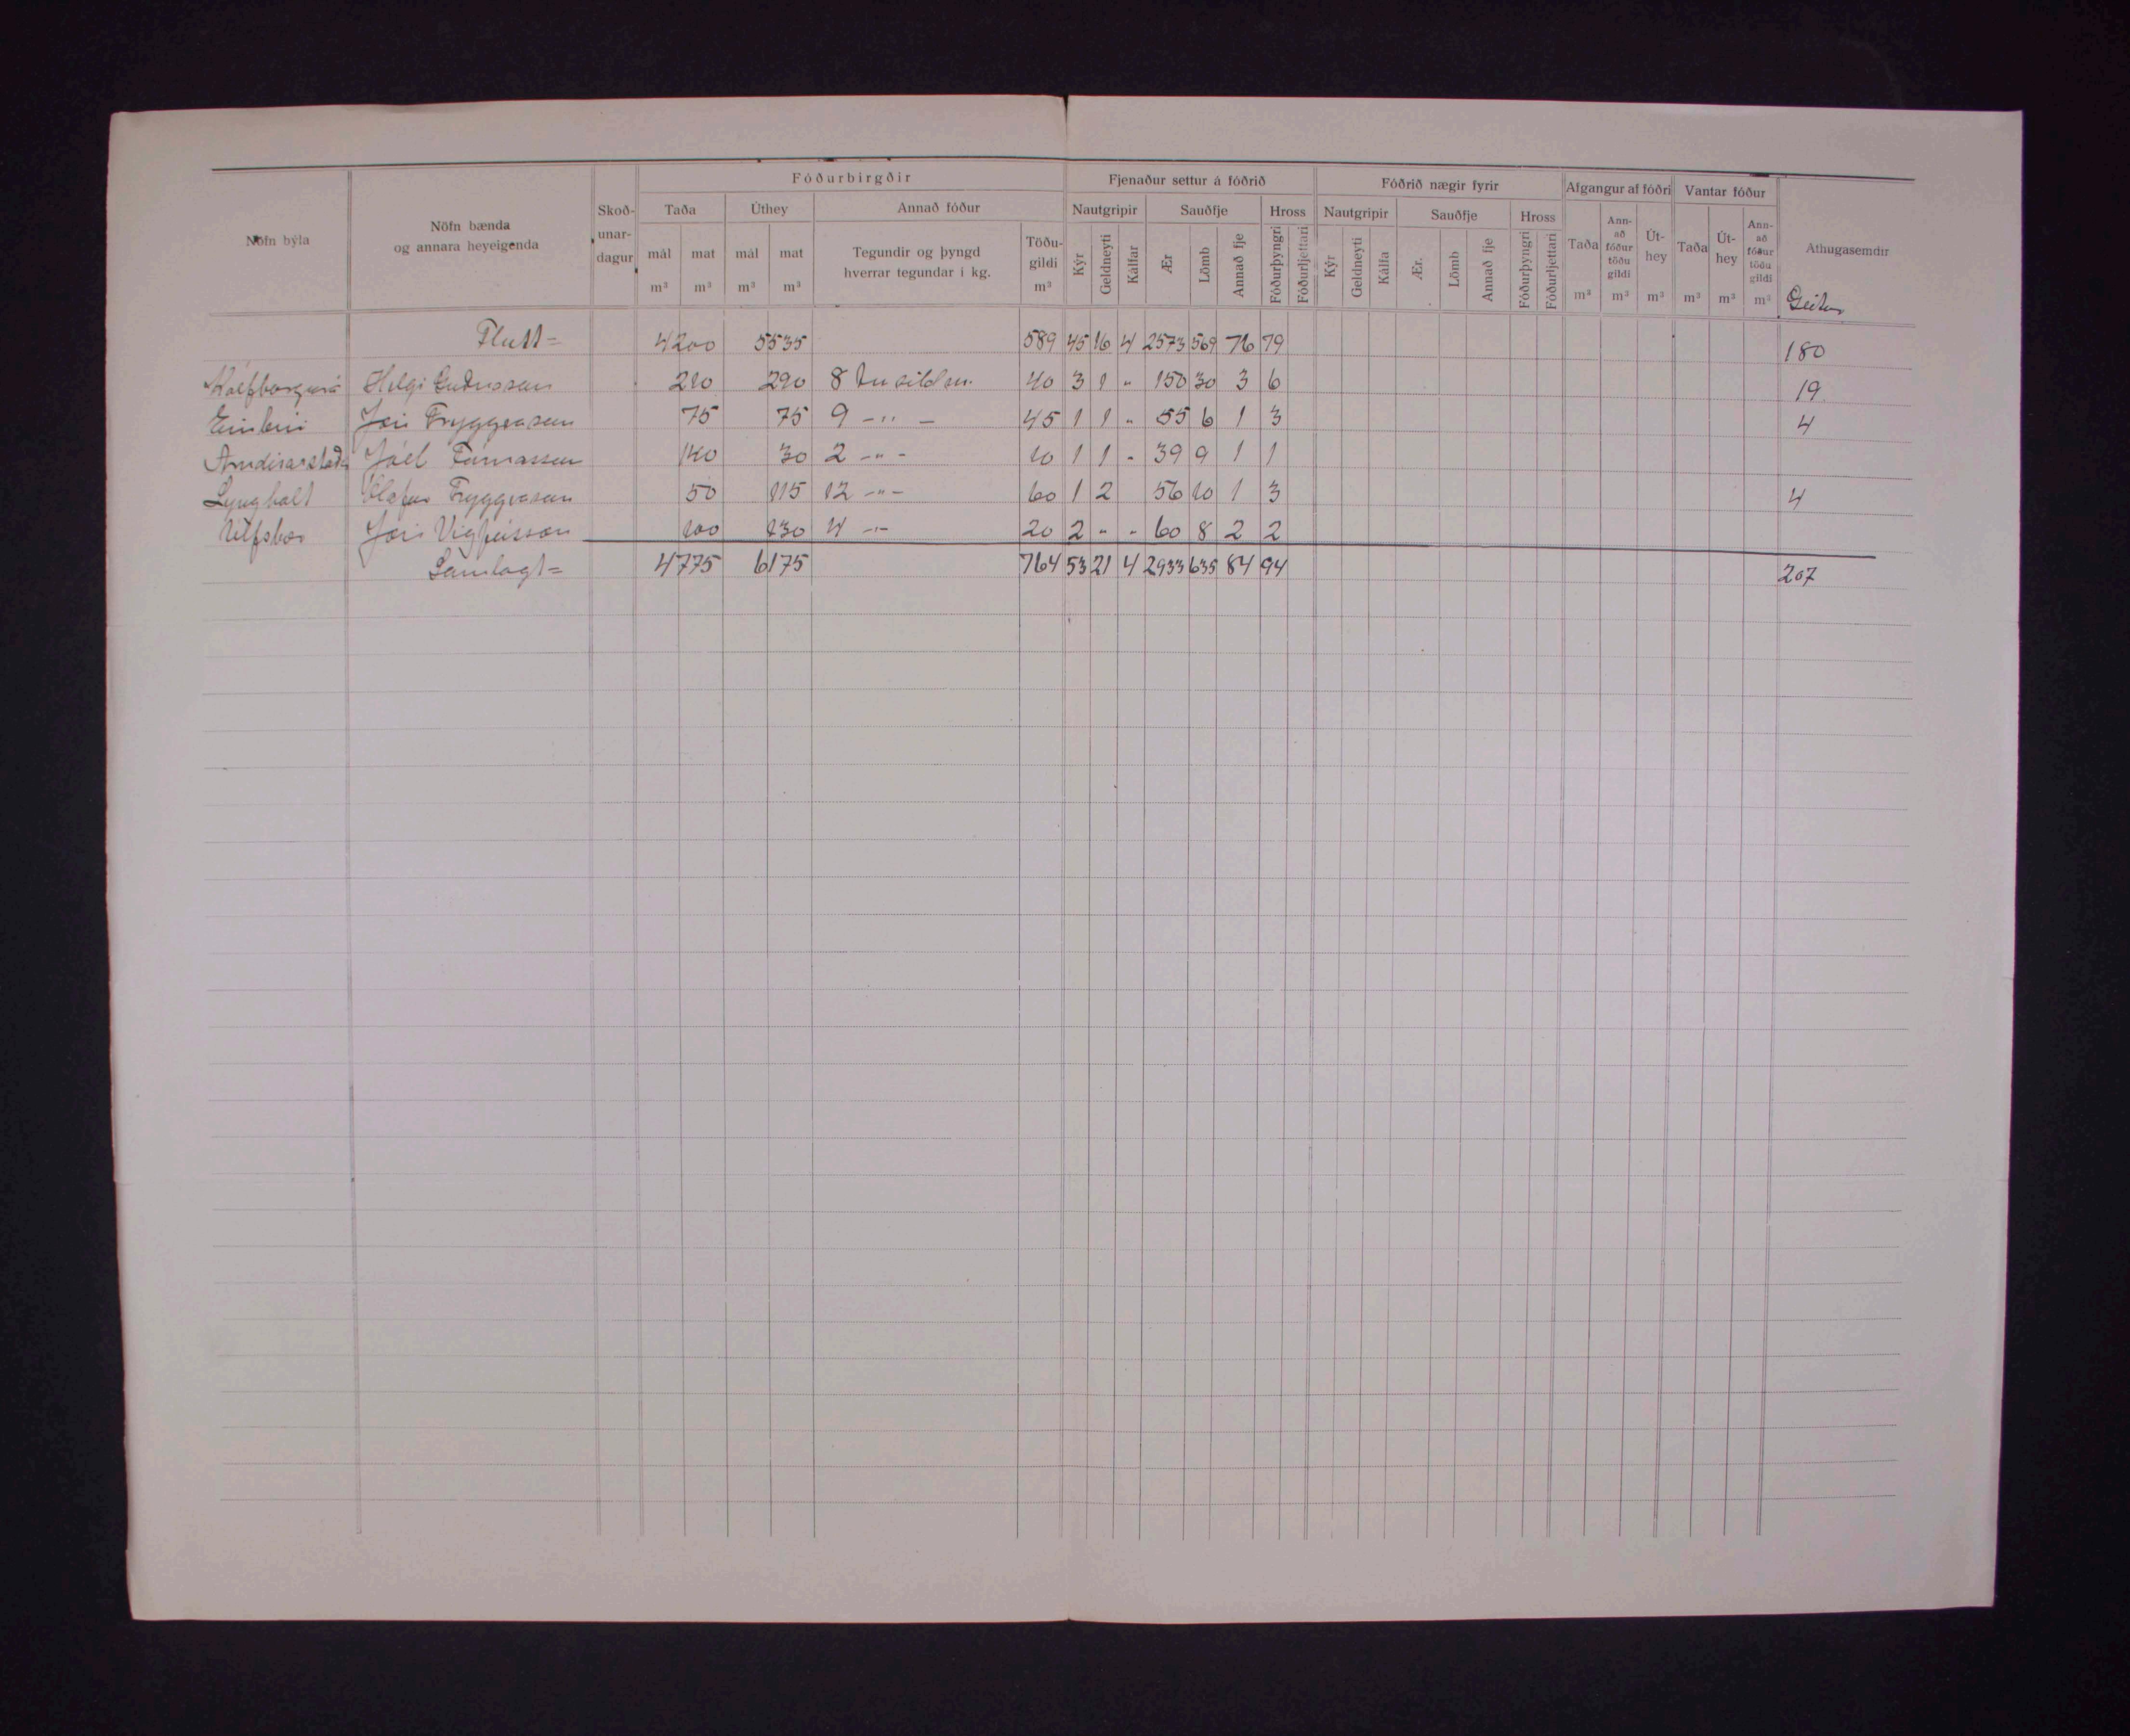 Fóðurbirgðir
Fjenaður settur á fóðrið
Fóðrið nægir fyrir
Afgangur af fóðri
Vantar fóður
Nöfn býla
Nöfn bænda
og annara heyeigenda
Skoð-
unar-
dagur
Taða
Úthey
Annað fóður
Nautgripir
Sauðfje
Hross
Nautgripir
Sauðfje
Hross
mál
m³
mat
m³
mál
m³
mat
m³
Tegundir og þyngd
hverrar tegundar í kg.
Töðu-
gildi
m³
Kýr
Geldneyti
Kálfar
Ær
Lömb
Annað fje
Fóðurþyngri
Fóðurljettari
Kýr
Geldneyti
Kálfa
Ær.
Lömb
Annað fje
Fóðurþyngri
Fóðurljettari
Taða
m³
Ann-
að
fóður
töðu
gildi
m³
Út-
hey
m³
Taða
m³
Út-
hey
m³
Ann-
að
fóður
töðu
gildi
m³
Athugasemdir
Geitur
Flutt = 4200 5535 589 45 16 4 2573 569 76 79 180
Kálfborgará Helgi 210 290 8 40 3 1 " 150 30 3 6 19
Einbúi Jón Tryggvason 75 75 9 -"- 45 1 1 " 55 6 1 3 4
Arndísarstaðir Jóel Tómasson 140 30 2 -"- 10 1 1 - 39 9 1 1
Lyngholt Ólafur Tryggvason 50 115 12 -"- 60 1 2 56 10 1 3 4
Úlfsbær Jón Vigfússon 100 130 4 -"- 20 2 - - 60 8 2 2
Samlagt = 4775 6175 764 53 21 4 2933 635 84 94 207